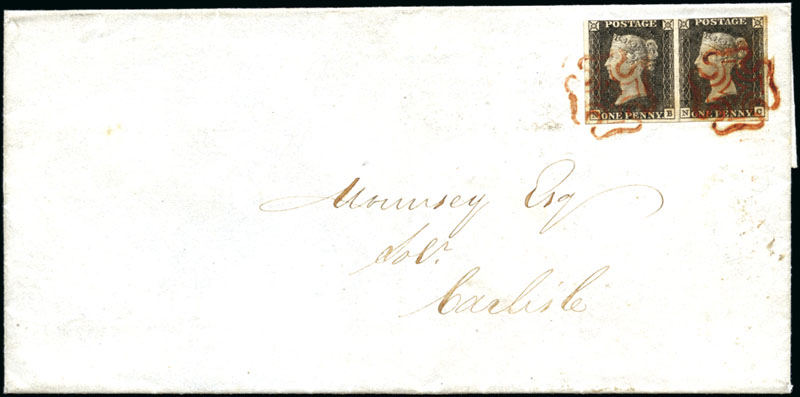 POSTAGE POSTAGE
N B N C
ONE PENNY ONE PENNY
Mounsey Esq
Solr.
Carlisle